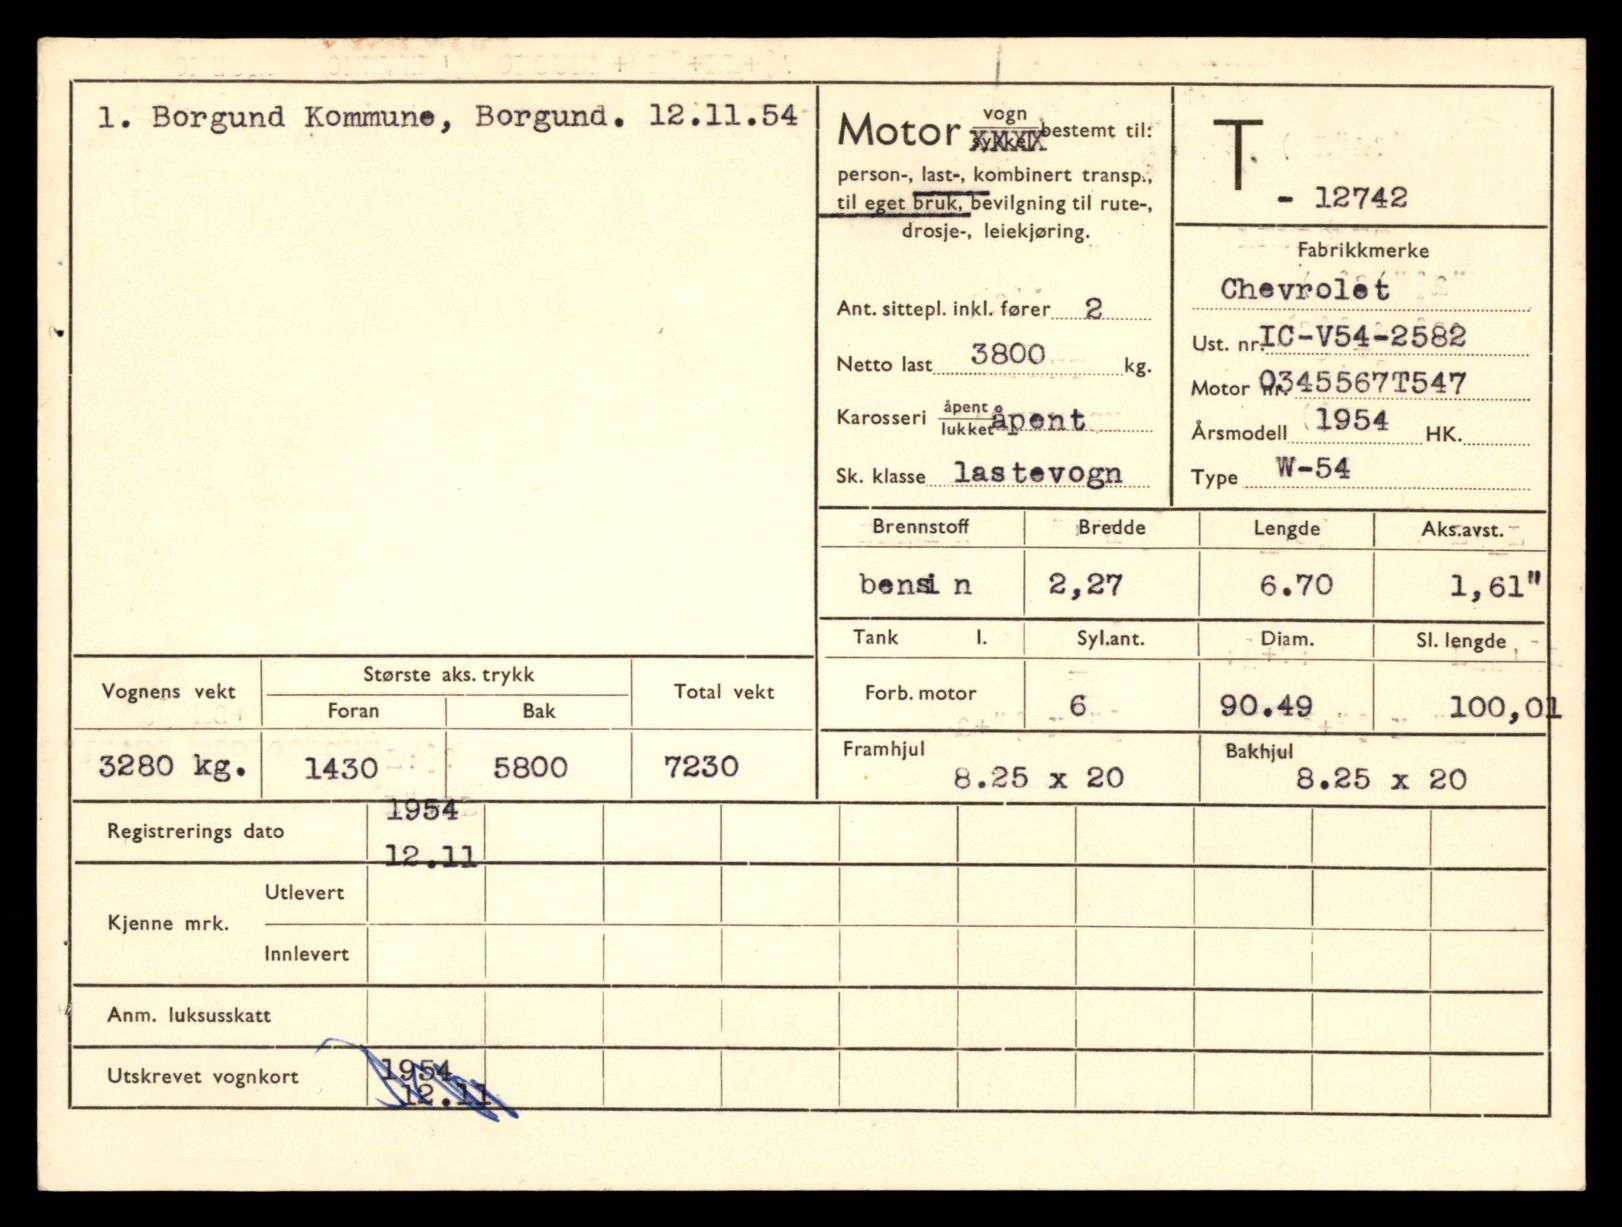 1. Borgund Kommune, Borgund. 12.11.54
Motor vogn sykkel bestemt til:
person-, last-, kombinert transp.,
til eget bruk, bevilgning til rute-,
drosje-, leiekjøring.
Ant. sittepl. inkl. fører 2
Netto last 3800 kg.
Karosseri åpent lukket åpent
Sk. klasse lastevogn
T - 12742
Fabrikkmerke
Chevrolet
Ust. nr. IC-V54-2582
Motor nr. 0345567T547
Årsmodell 1954 HK.
Type W-54
Brennstoff Bredde Lengde Aks.avst.
bensin 2,27 6.70 1,61"
Tank l. Syl.ant. Diam. Sl. lengde
Forb. motor 6 90.49 100,01
Framhjul 8.25 x 20
Bakhjul 8.25 x 20
Vognens vekt Største aks. trykk Total vekt
Foran Bak
3280 kg. 1430 5800 7230
Registrerings dato 1954
12.11
Kjenne mrk. Utlevert
Innlevert
Anm. luksusskatt
Utskrevet vognkort 1954
12.11